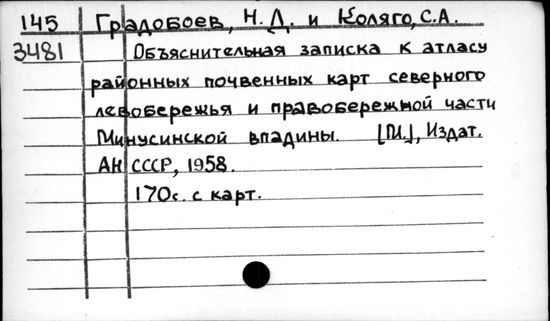 145 Градобоев, Н.Д. и Коляго, С.А.
3481 Объяснительная записка к атласу
районных почвенных карт северного
левобережья и правобережной части
Минусинской впадины. [М.], Издат.
АН СССР, 1958.
170с. с карт.